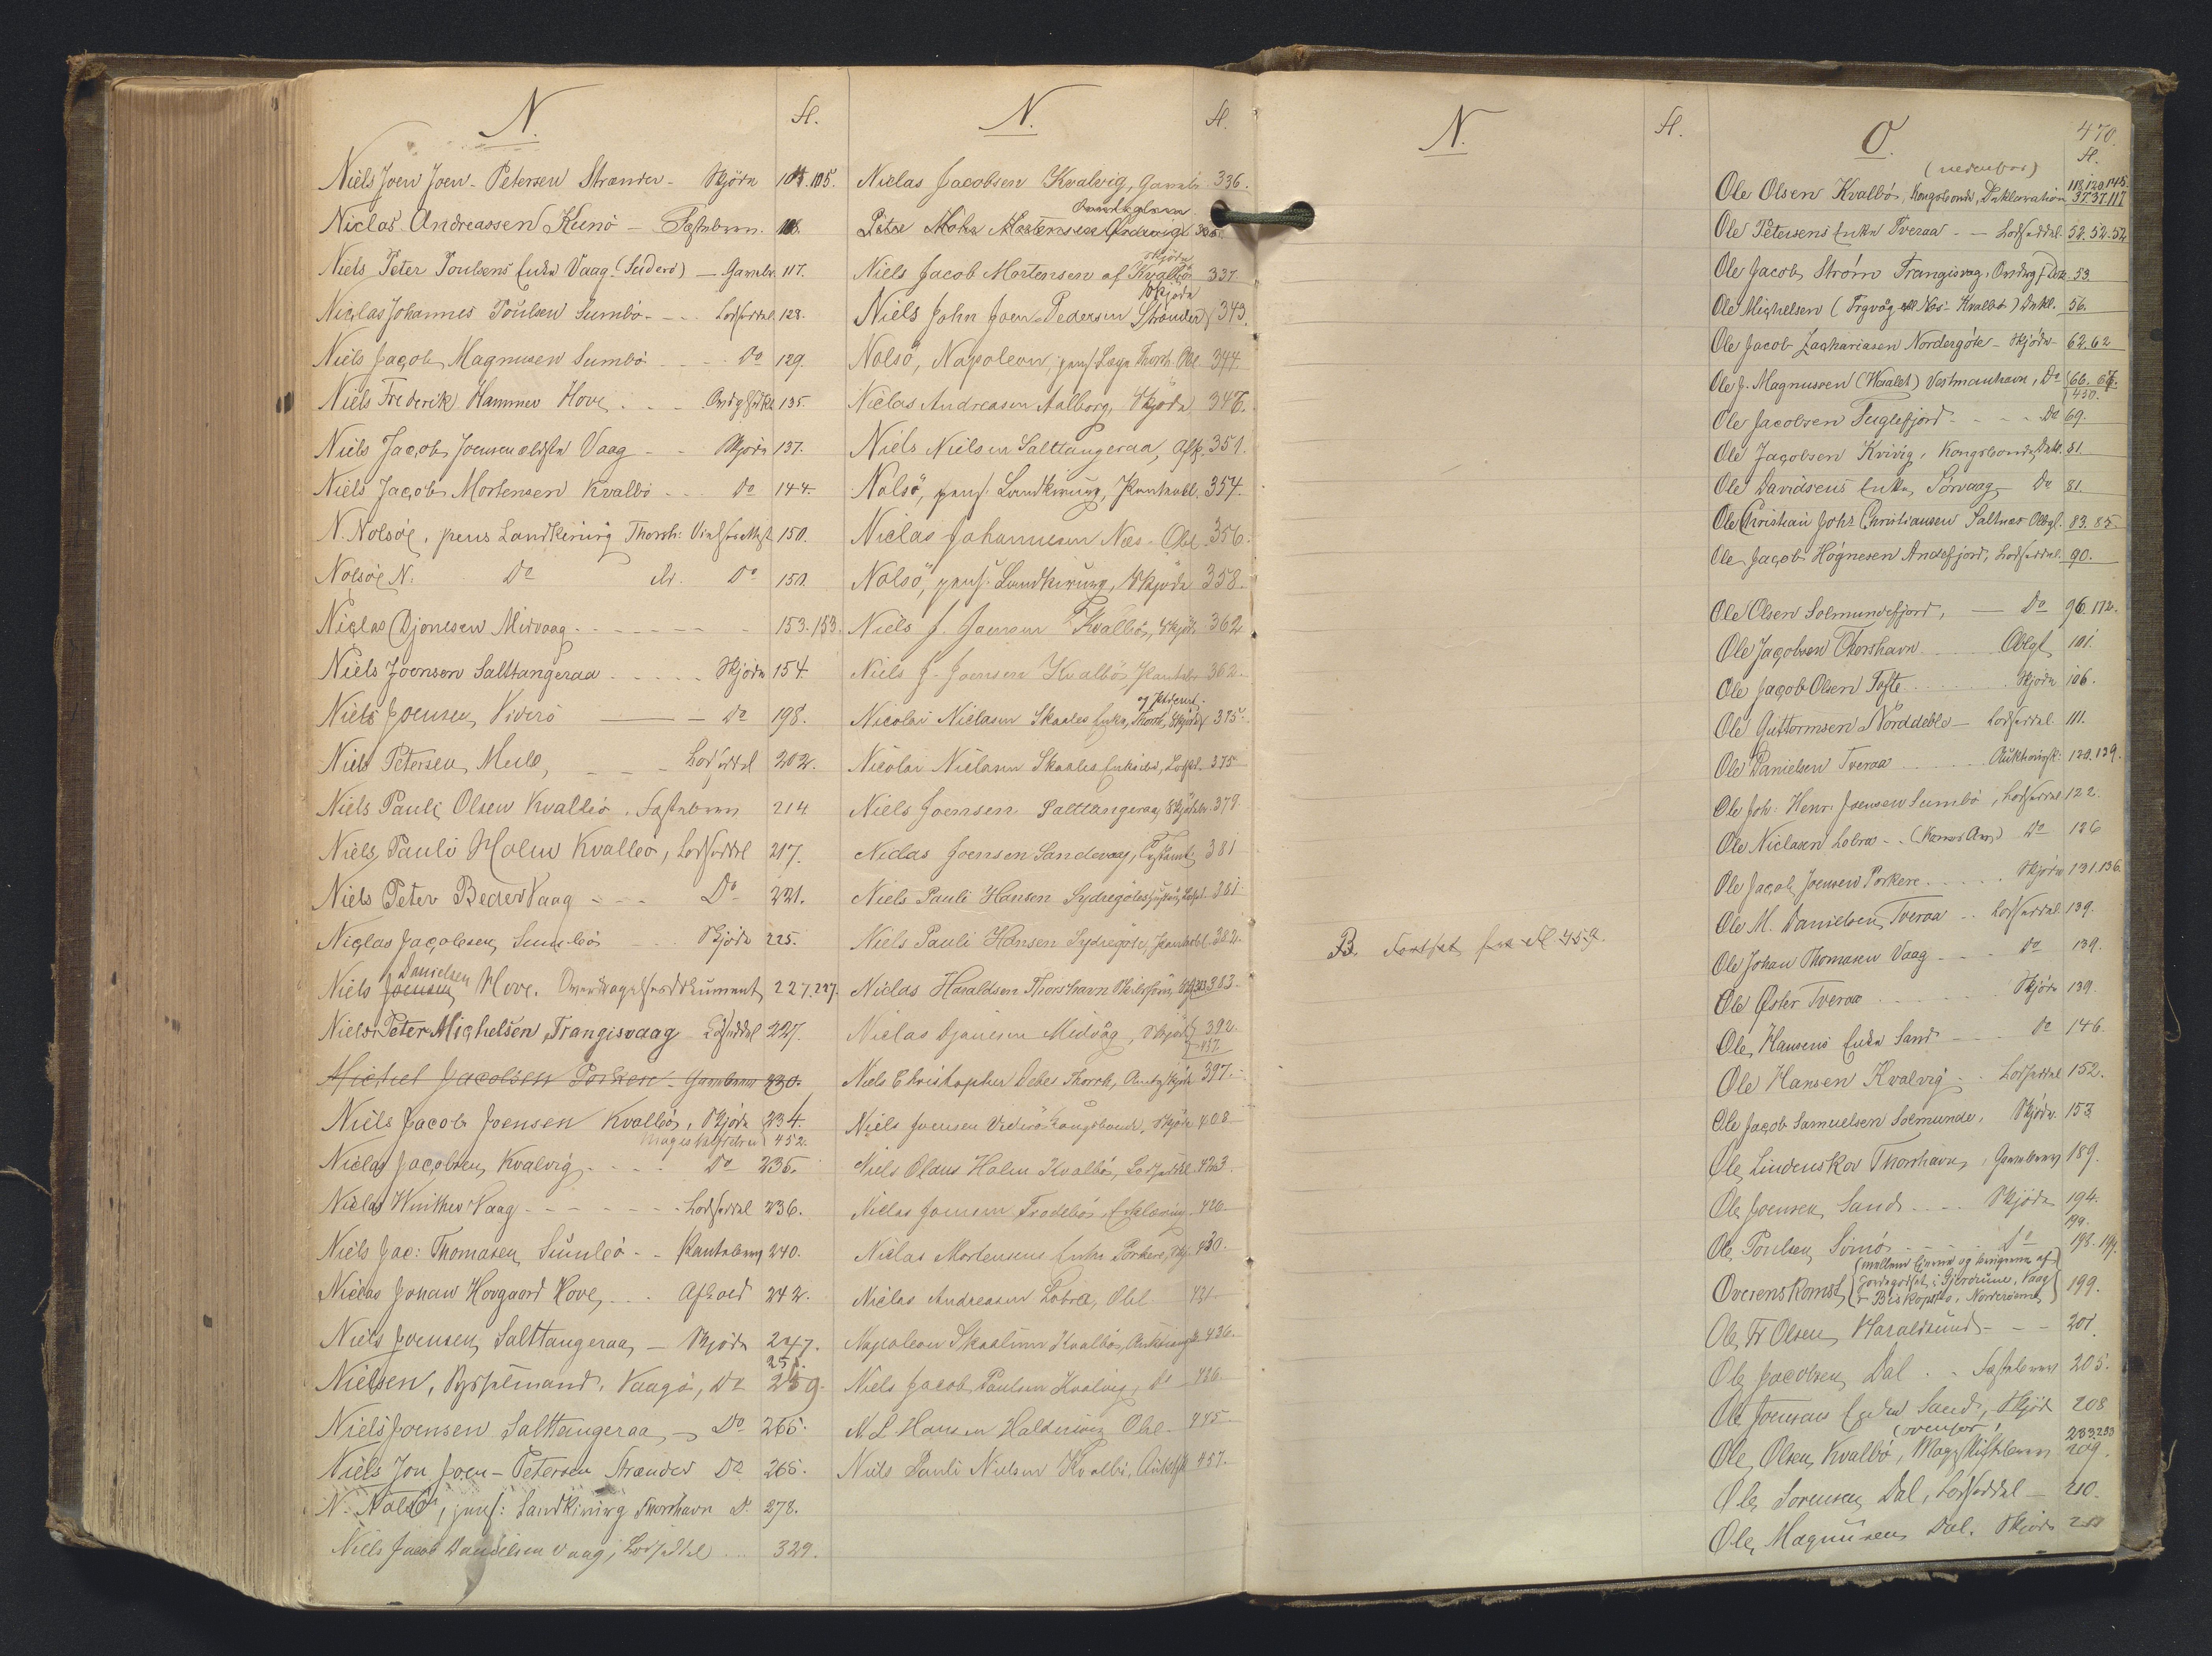 N.
Niels Joen Joen-Petersen Strænder - Skjöde 104.105.
Niclas Andreassen Kunö - Fæstebrev. 108.
Niels Peter Poulsens Enke Vaag (Suderö) - Gavebr. 117.
Niclas Johannes Poulsen Sumbö - - - Lodseddel 128.
Niels Jacob Magnusen Sumbö - - Do 129.
Niels Frederik Hammer Hove - - 135.
Niels Jacob Joensen ældste Vaag - - Skjöde 137.
Niels Jacob Mortensen Kvalbö - - Do 144.
N. Nolsöe, pens Landkirurg Thorsh: 150.
Nolsöe N. Do Do 150.
Niclas Djonesen Midvaag - - - - 153.153.
Niels Joensen Salttangeraa - - - Skjöde 154.
Niels Joensen, Viderö - Do 198.
Niels Petersen, Mule, - - Lodseddel 202.
Niels Pauli Olsen Kvalbö, Fæstebrev 214.
Niels Pauli Holm Kvalbö, Lodseddel 217.
Niels Peter Beder Vaag - - Do 221.
Niclas Jacobsen, Sumbö - - Skjöde 225.
Danielsen
Niels Joensen, Hove. 227.227.
Niels Peter Michelsen, Trangisvaag Lodseddel 227.
Michel Jacobsen Porkere - Gavebrev 230.
Niels Jacob Joensen Kvalbö, Skjöde 234.
Mageskiftebrev 452.
Niclas Jacobsen, Kvalvig - - - Do 235.
Niclas Winther Vaag - - - - Lodseddel 236.
Niels Jac: Thomasen, Sumbö - - Pantebrev 240.
Niclas Johan Hovgaard Hove, - - Afkald 242.
Niels Joensen, Salttangeraa, - Skjöde 247.
251.
Nielsen, Sysselmand, Vaagö, Do 259.
Niels Joensen Salttangeraa - Do 265.
Niels Jon Joen-Petersen Strænder Do 265.
N. Nolsö, pens: Landkirurg Thorshavn D. 278.
Niels Jacob Danielsen Vaag, Lodseddel .. 329.
N.
Niclas Jacobsen Kvalvig, Gavebr. 336.
Niels Jacob Mortensen af Kvalbö Skjöde 337.
Niels John Joen-Pedersen Strænder Skjöde 343.
Nolsö, Napoleon, pens. Læge Thorsh. Obl. 344.
Niclas Andreasen Aalborg, Skjöde 347.
Niels Nielsen Salttangeraa, Afk. 351.
Nolsö, pens. Landkirurg, Panteobl. 354.
Niclas Johannesen Næs. Obl. 356.
Nolsö, pens. Landkirurg, Skjöde 358.
Niels J. Joensen Kvalbö, Skjöde 362
Niels J. Joensen Kvalbö, Pantebr 362.
Nicolai Niclasen Skaales Enke, Thorsh, Skjöde 375.
Nicolai Niclasen Skaales Enkes 375
Niels Joensen Salttangeraa, Skjöde 379.
Niclas Joensen Sandevaag, 381
Niels Pauli Hansen Sydregöte 381.
Niels Pauli Hansen Sydregöte, Panteobl. 382.
Niclas Haraldsen Thorshavn 383.
Niclas Djonesen Midvåg, Skjöde 392.
457.
Niels Christopher Debes Thorsh, 397.
Niels Joensen Viderö Kongsbonde, Skjöde 408
Niels Olaus Holm Kvalbö, Lodseddel 423.
Niclas Joensen Frodebö, Erklæring 420
Niclas Mortensens Enke Porkere, Skj. 430.
Niclas Andreasen Lobra, Obl. 431
Napoleon Skaalum Kvalbö, 436.
Niels Jacob Paulsen Kvalvig, Do 436
N. L. Hansen Haldervig Obl. 445
Niels Pauli Nielsen Kvalbö, 457.
N.
B. Fortsat fra 459.
O. 470.
(nedenfor)
Ole Olsen Kvalbö, Kongsbonde, Deklaration 37.37.117
118.120.145.
Ole Petersens Enke Tveraa - - Lodseddel 52.52.52
Ole Jacob Ström Trangisvag, 53.
Ole Michelsen (Trgvåg Næs - Kvalbö) Dekl. 56.
Ole Jacob Zachariasen Nordregöte - Skjöde 62.62
Ole J. Magnussen (Kaalet) Vestmanhavn, Do 66. 67.
450.
Ole Jacobsen Fuglefjord - - - Do 69.
Ole Jacobsen Kvivig, Kongsbonde, Dekl. 81.
Ole Davidsens Enke, Sörvaag, Do 81.
Ole Christian Johs Christiansen Saltnes Oblgt. 83.85.
Ole Jacob Högnesen Andefjord, Lodseddel. 90.
Ole Olsen Solmundefjord, - Do 96.112.
Ole Jacobsen Thorshavn Oblgt. 101.
Ole Jacob Olsen Tofte Skjöde 106.
Ole Guttormsen Norddeble - Lodseddel. 111.
Ole Danielsen Tveraa 120.139.
Ole Joh: Henr. Joensen Sumbö, Lodseddel 122.
Ole Niclasen Lobra - - Do 126
Ole Jacob Joensen Porkere Skjöde 131.136.
Ole M. Danielsen, Tveraa - Lodseddel 139.
Ole Johan Thomasen Vaag - - Do 139.
Ole Öster Tveraa Skjöde 139.
Ole, Hansens Enke Sand - - Do 146.
Ole Hansen Kvalvig - Lodseddel 152.
Ole Jacob Samuelsen Solmunde, Skjöde 153
Ole Lindenskov Thorshavn, Gavebrev 189.
Ole Joensen, Sand - - - Skjöde 194.
199.
Ole Poulsen, Simö Do 198.199.
Overenskomst, (mellem Ejerne og Brugerne af Jordegodset i Gjordium, Vaag Biskopstö, Norderöerne) 199.
Ole Fr. Olsen, Haraldsund - - - 201.
Ole Jacobsen, Dal - - Fæstebrev 205.
Ole Joensens Enke Sand, Skjöde 208
(ovenfor)
Ole, Olsen, Kvalbö, Mageskiftebrev 209.
233.233
Ole Sorensen, Dal, Lodseddel - 210.
Ole, Magnusen Dal, Skjöde